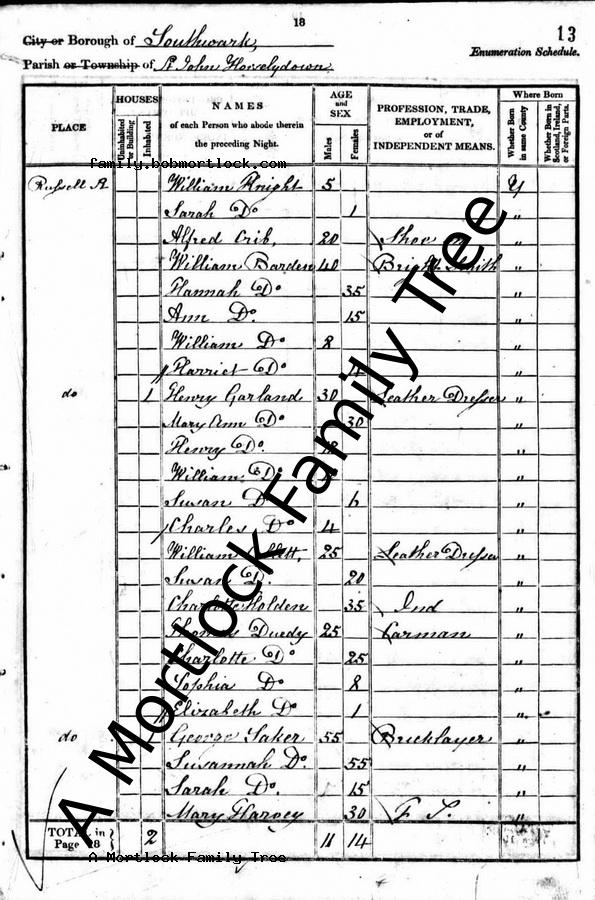 18
13
City or Borough of Southwark,
Enumeration Schedule.
Parish or Township of St John Horselydown.
PLACE
HOUSES
Uninhabited or Building
Inhabited
NAMES
of each Person who abode therein
the preceding Night.
AGE
and
SEX
Males
Females
PROFESSION, TRADE,
EMPLOYMENT,
or of
INDEPENDENT MEANS.
Where Born
Whether Born in same County
Whether Born in Scotland, Ireland, or Foreign Parts.
family.bobmortlock.com
Russell St William Knight 5 Y
Sarah Do 1 "
Alfred Crib, 20 Shoe "
William Barden 40 Smith "
Hannah Do 35 "
Ann Do. 15 "
William Do 8 "
Harriet Do 4 "
do 1 Henry Garland 30 Leather Dresser "
Mary Ann Do 30 "
Henry Do. "
William Do "
Susan Do 6 "
Charles Do 4 "
William 25 Leather Dresser "
Susan D. 20 "
Charlotte Holden 35 Ind "
Thomas Duedy 25 Carman "
Charlotte Do 25 "
Sophia Do 8 "
Elizabeth Do 1 "
do 1 George Saker 55 Bricklayer "
Susannah Do. 55 "
Sarah Do. 15 "
Mary Harvey 30 F. S. "
TOTAL in
Page 28 2 11 14
A Mortlock Family Tree
A Mortlock Family Tree